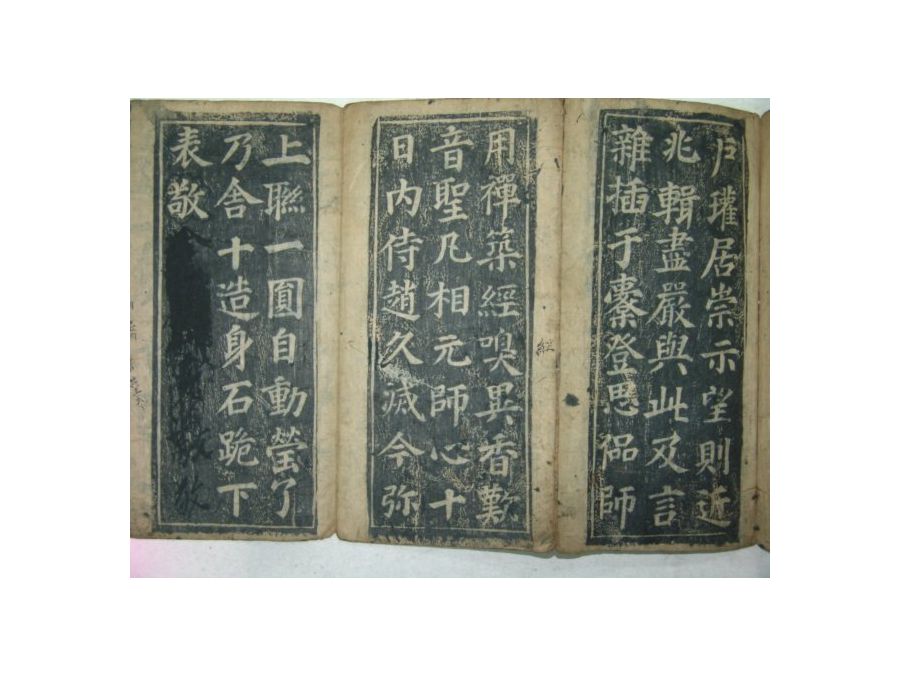 戶瓘居崇示望則近
兆輯盡嚴與此及言
雜插于橐登思師
用禪築經嗅異香歎
音聖凡相元師心十
日內侍趙久減今弥
上聮一圓自動瑩了
乃舍十造身石跪下
表敬